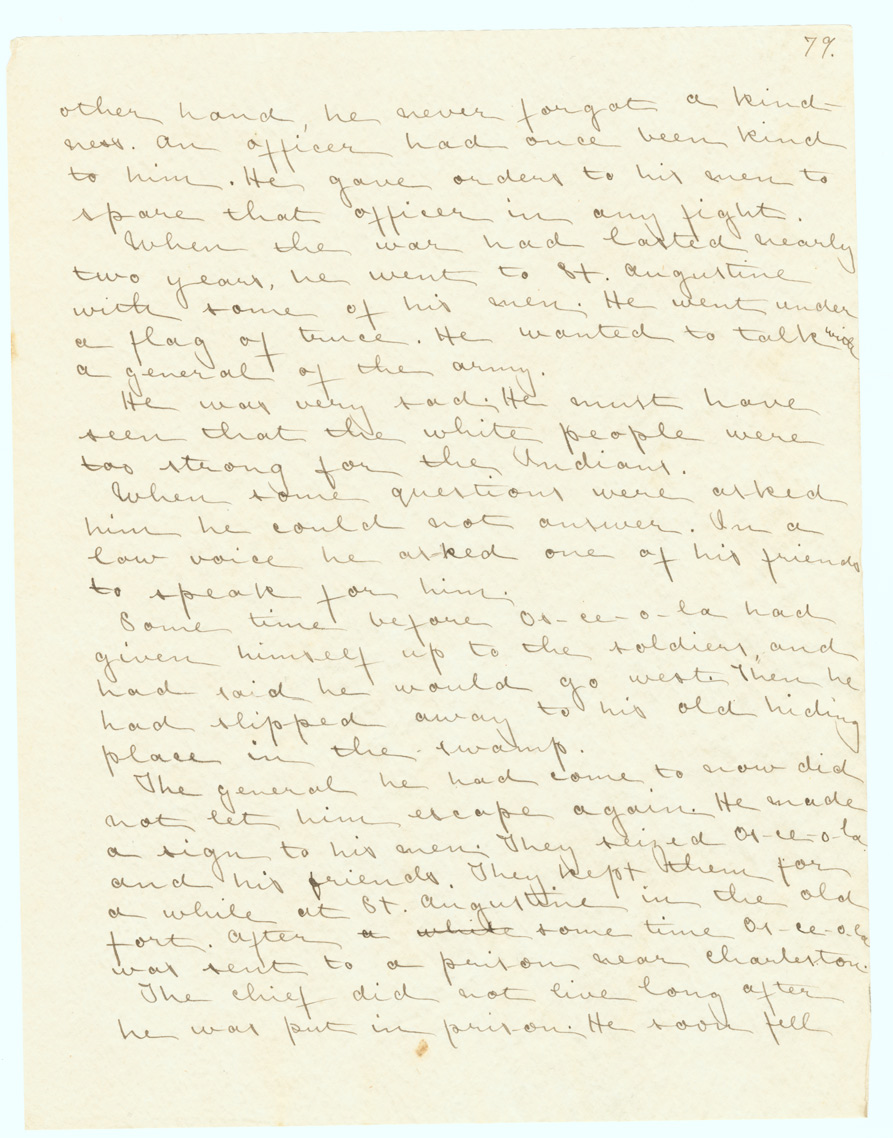 79.
other hand, he never forgot a kind-
ness. An officer had once been kind
to him. He gave orders to his men to
spare that officer in any fight.
When the war had lasted nearly
two years, he went to St. Augustine
with some of his men. He went under
a flag of truce. He wanted to talk with
a general of the army.
He was very sad. He must have
seen that the white people were
too strong for the Indians.
When some questions were asked
him he could not answer. In a
low voice he asked one of his friends
to speak for him.
Some time before Os-ce-o-la had
given himself up to the soldiers, and
had said he would go west. Then he
had slipped away to his old hiding
place in the swamp.
The general he had come to now did
not let him escape again. He made
a sign to his men. They seized Os-ce-o-la
and his friends. They kept them for
a while at St. Augustine in the old
fort. After a while some time Os-ce-o-la
was sent to a prison near Charleston.
The chief did not live long after
he was put in prison. He soon fell